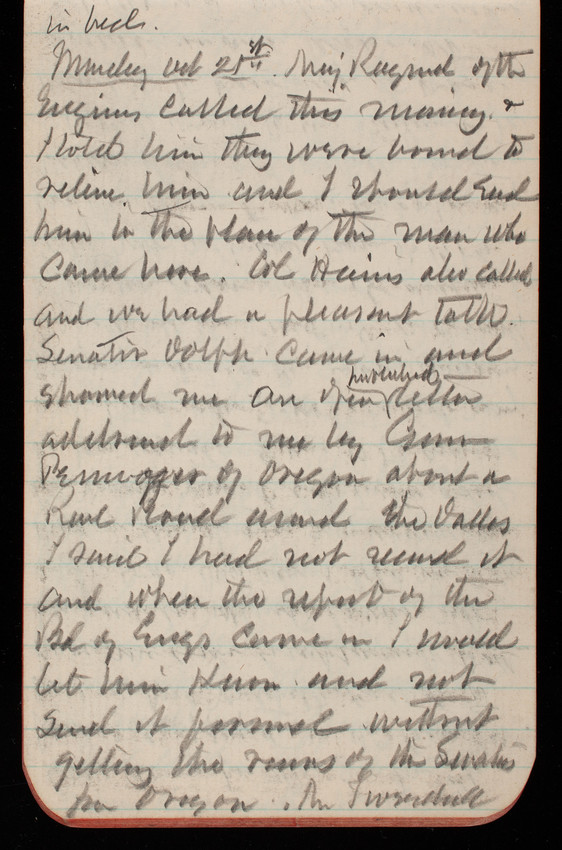 in beds.
Monday Oct 21st. Maj. Raymond of the
Engineers called this morning &
I told him they were bound to
relieve him and I should send
him to the place of the man who
came here. Col Hains also called
and we had a pleasant talk.
Senator Dolph came in and
showed me an open published letter
addressed to me by Gov
Pennoyer of Oregon about a
Rail Road around the Dalles
I said I had not received it
and when the report of the
Bd of Engs came in I would
let him know and not
send it forward without
getting the views of the Senator
from Oregon. Mr Tweedale